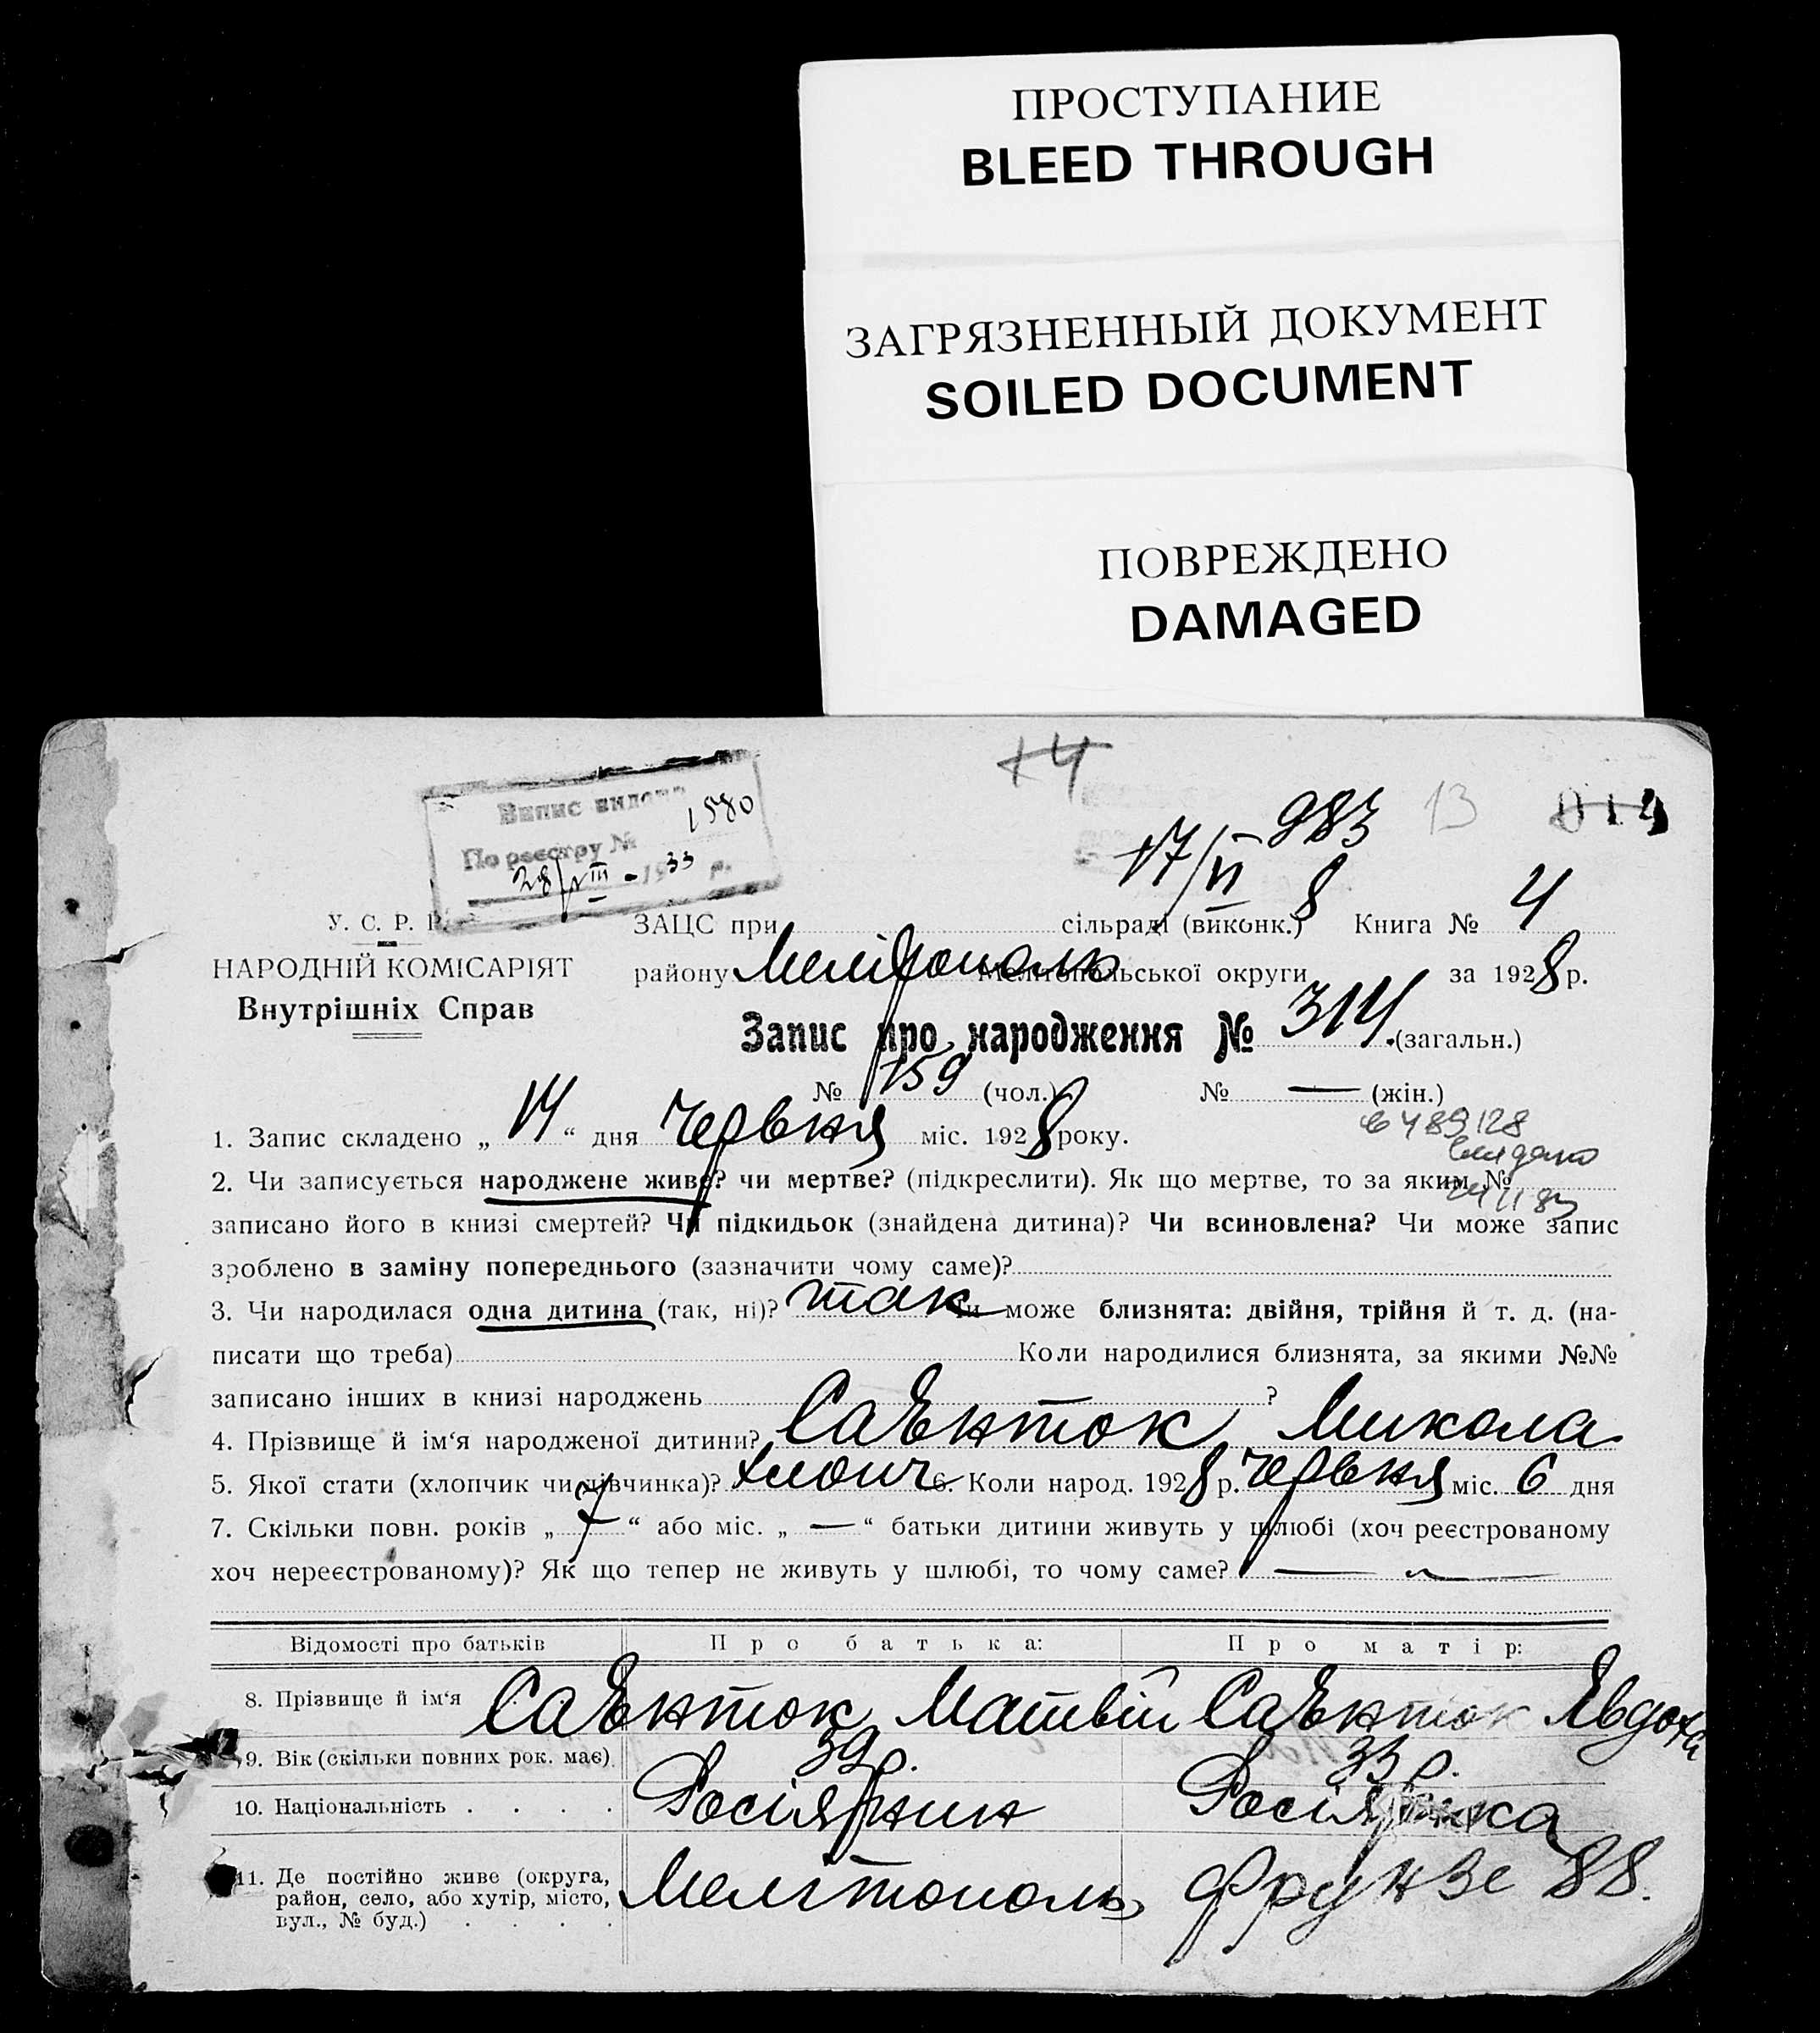 ПРОСТУПАНИЕ
BLEED THROUGH
ЗАГРЯЗНЕННЫЙ ДОКУМЕНТ
SOILED DOCUMENT
ПОВРЕЖДЕНО
DAMAGED
14
983 13 014
17/VI 8
Випис видано 1580
По реєстру №
28/VIII - 1933 р.
У. С. Р. Р.
НАРОДНІЙ КОМІСАРІЯТ
Внутрішніх Справ
ЗАЦС при сільраді (виконк.) Книга № 4
району Мелітополь Мелітопільської округи за 1928 р.
Запис про народження № 314 (загальн.)
№ 159 (чол.) № — (жін.)
1. Запис складено „ 14 “ дня червня міс. 1928 року.
489128
видано
2. Чи записується народжене живе? чи мертве? (підкреслити). Як що мертве, то за яким №
записано його в книзі смертей? Чи підкидьок (знайдена дитина)? Чи всиновлена? Чи може запис
зроблено в заміну попереднього (зазначити чому саме)?
3. Чи народилася одна дитина (так, ні)? так Чи може близнята: двійня, трійня й т. д. (на-
писати що треба) Коли народилися близнята, за якими №№
записано інших в книзі народжень ?
4. Прізвище й ім‘я народженої дитини? Саєнток Микола
5. Якої стати (хлопчик чи дівчинка)? хлопч 6. Коли народ. 1928 р. червня міс. 6 дня
7. Скільки повн. років „ 7 “ або міс. „ — “ батьки дитини живуть у шлюбі (хоч реєстрованому
хоч нереєстрованому)? Як що тепер не живуть у шлюбі, то чому саме? —
Відомості про батьків Про батька: Про матір:
8. Прізвище й ім‘я Саєнток Матвій Саєнток Явдоха
9. Вік (скільки повних рок. має) 39 р. 33 р.
10. Національність . . . . Росіянин Росіянка
11. Де постійно живе (округа,
район, село, або хутір, місто,
вул., № буд.) . . . .
Мелітополь Фрунзе 88.